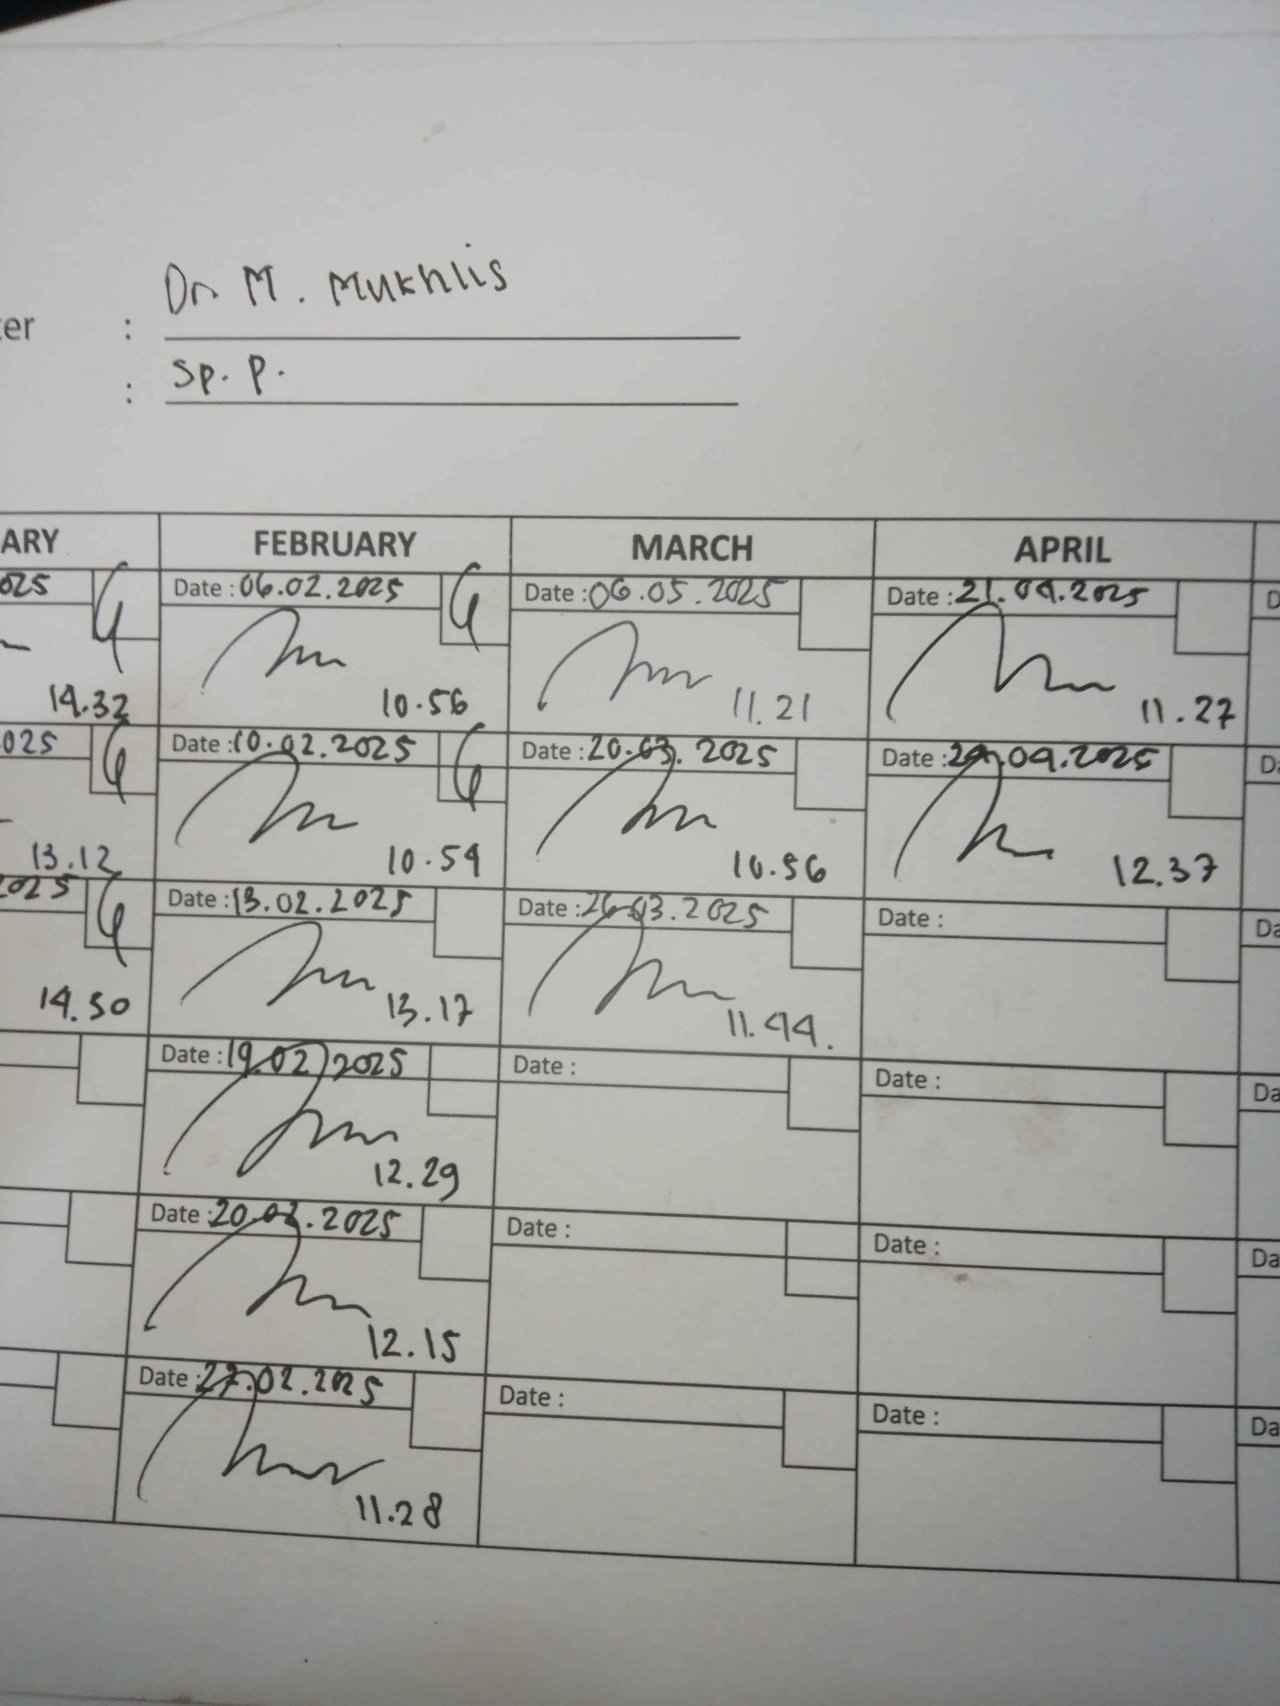 Dr M. Mukhlis
ter :
: Sp. P.
ARY FEBRUARY MARCH APRIL
025 Date : 06.02.2025 Date : 06.05.2025 Date : 21.04.2025
14.32 10.56 11.21 11.27
025 Date : 10.02.2025 Date : 20.03.2025 Date : 24.04.2025
13.12 10.54 10.56 12.37
2025 Date : 13.02.2025 Date : 26.03.2025 Date :
14.50 13.17 11.44.
Date : 19.02.2025 Date : Date :
12.29
Date : 20.02.2025 Date : Date :
12.15
Date : 27.02.2025 Date : Date :
11.28